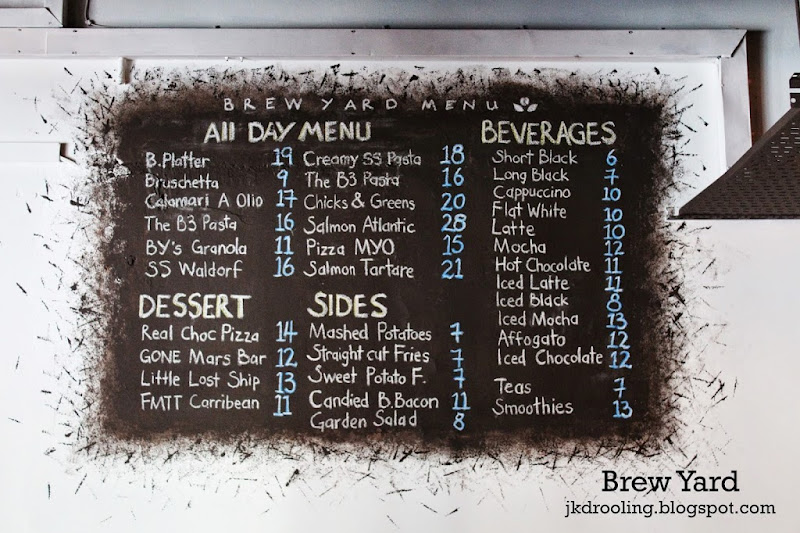 BREW YARD MENU
All DAY MENU
B.Platter 19
Bruschetta 9
Calamari A Olio 17
The B3 Pasta 16
BY's Granola 11
SS Waldorf 16
Creamy SS Pasta 18
The B3 Pasta 16
Chicks & Greens 20
Salmon Atlantic 28
Pizza MYO 15
Salmon Tartare 21
DESSERT
Real Choc Pizza 14
GONE Mars Bar 12
Little Lost Ship 13
FMTT Carribean 11
SIDES
Mashed Potatoes 7
Straight cut Fries 7
Sweet Potato F. 7
Candied B.Bacon 11
Garden Salad 8
BEVERAGES
Short Black 6
Long Black 7
Cappuccino 10
Flat White 10
Latte 10
Mocha 12
Hot Chocolate 11
Iced Latte 11
Iced Black 8
Iced Mocha 13
Affogato 12
Iced Chocolate 12
Teas 7
Smoothies 13
Brew Yard
jkdrooling.blogspot.com